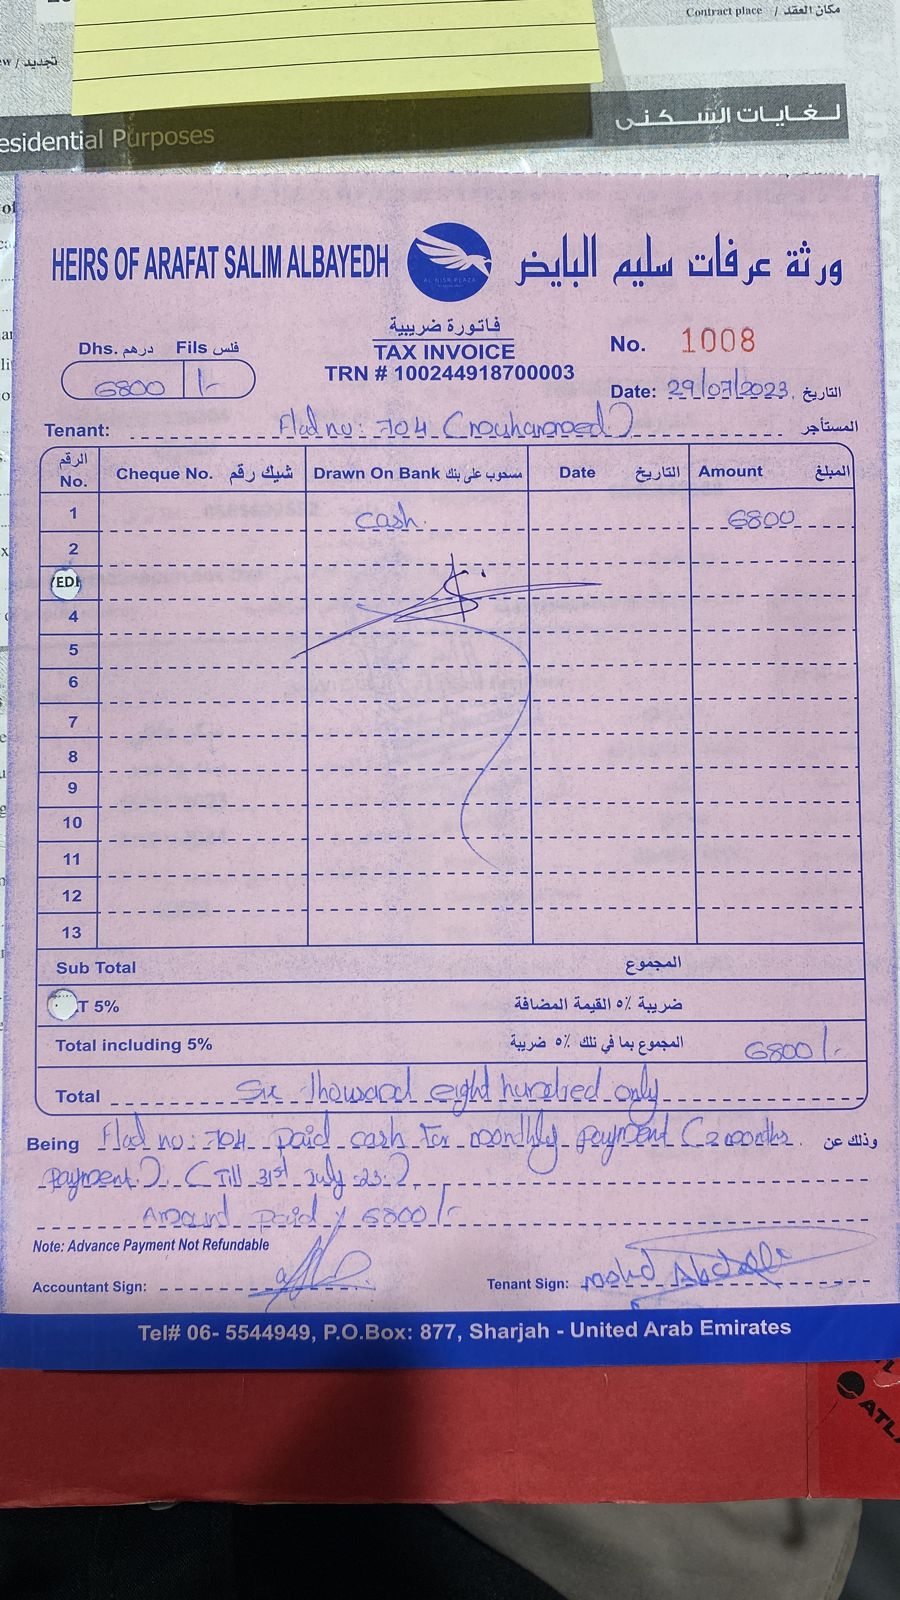 Contract place / مكان العقد
تجديد /
esidential Purposes
لغايات السكنى
HEIRS OF ARAFAT SALIM ALBAYEDH
ورثة عرفات سليم البايض
AL NISR PLAZA
فاتورة ضريبية
TAX INVOICE
TRN # 100244918700003
No. 1008
Dhs. درهم Fils فلس
6800 /-
Date: 29/07/2023 التاريخ
Tenant: Flad no: 704 (mouhammed) المستأجر
الرقم No. Cheque No. شيك رقم Drawn On Bank مسحوب على بنك Date التاريخ Amount المبلغ
1 cash 6800
2
EDI
4
5
6
7
8
9
10
11
12
13
Sub Total المجموع
T 5% ضريبة ٥٪ القيمة المضافة
Total including 5% المجموع بما في ذلك ٥٪ ضريبة 6800/-
Total Six thousand eight hundred only
Being Flad no: 704 paid cash for monthly payment (2 months وذلك عن
payment). (Till 31st July-23.)
Amount paid 6800/-
Note: Advance Payment Not Refundable
Accountant Sign:
Tenant Sign:
Tel# 06- 5544949, P.O.Box: 877, Sharjah - United Arab Emirates
ATL